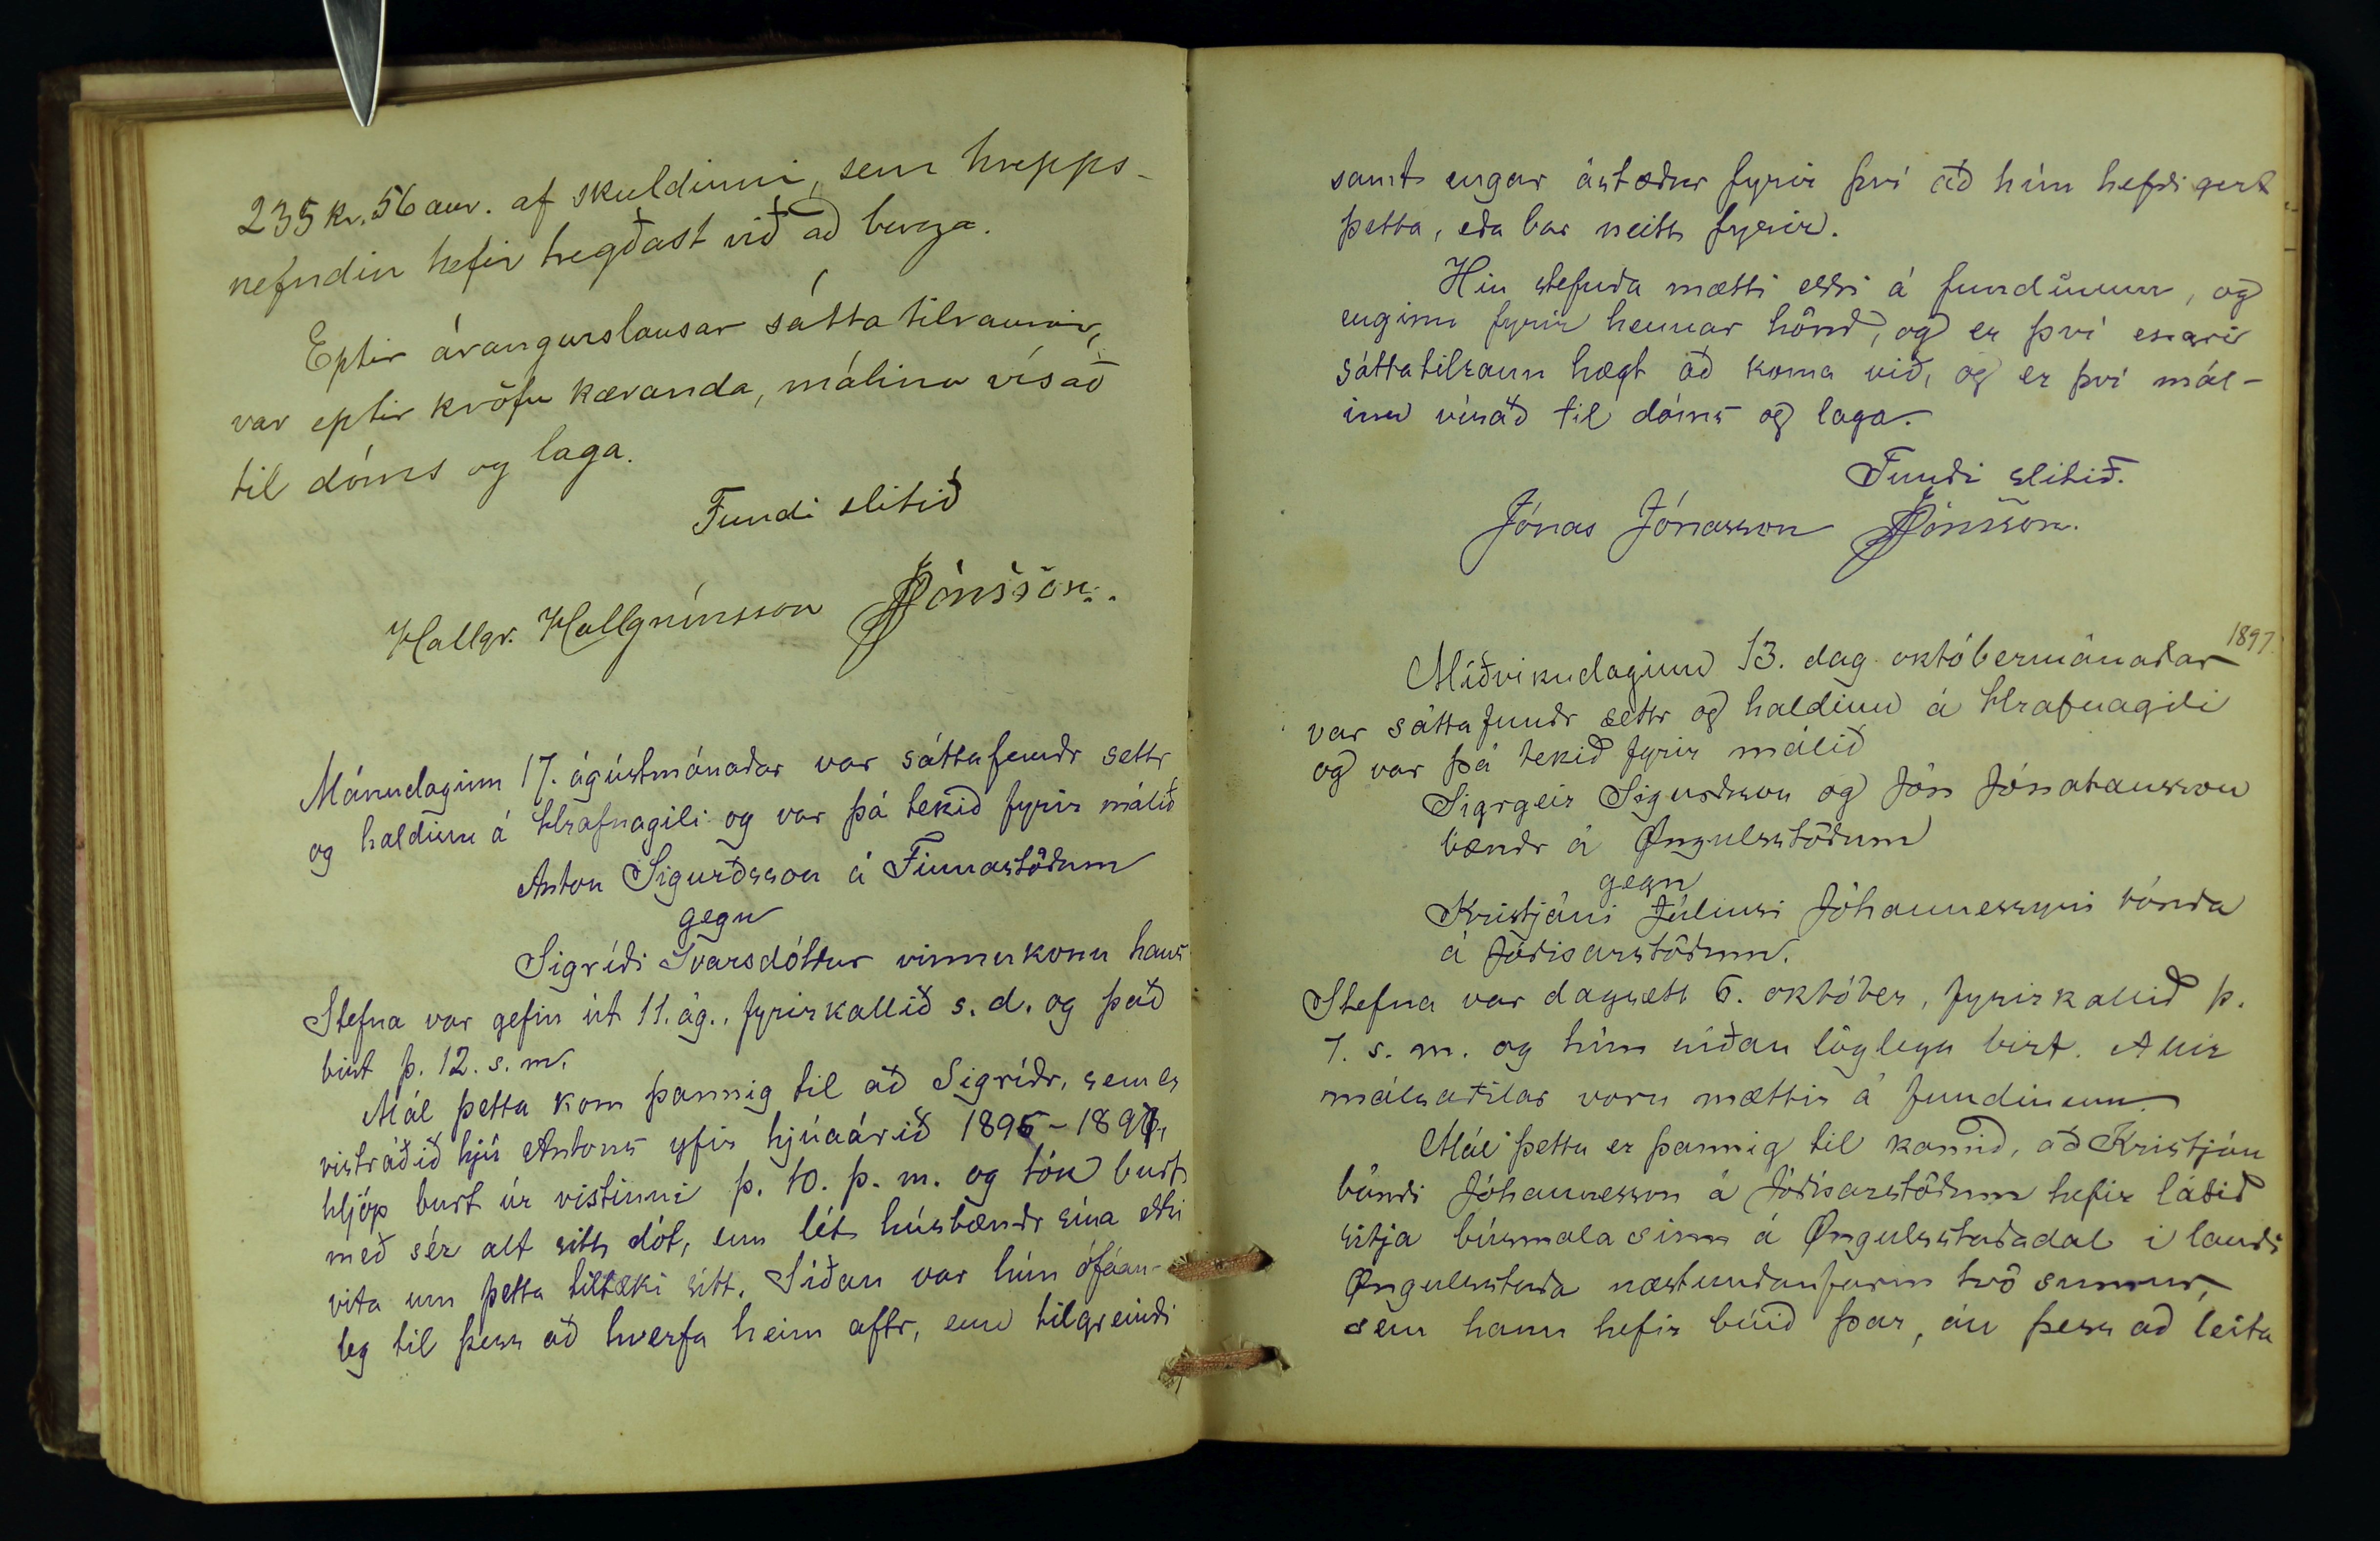 235 kr. 56 aur. af skuldinni, sem hrepps-
nefndin hefir tregðast við að borga.
Eptir árangurslausar sáttatilraunir,
var eptir kröfu kæranda, málinu vísað
til dóms og laga.
Fundi slitið
Hallgr. Hallgrímsson JJónsson.
Mánudaginn 17. ágústmánaðar var sáttafundr settr
og haldinn á Hrafnagili og var þá tekið fyrir málið
Anton Sigurðsson á Finnastöðum
gegn
Sigríði Ívarsdóttur vinnukonu hans
Stefna var gefin út 11. ág., fyrirkallið s. d. og það
birt þ. 12. s. m.
Mál þetta kom þannig til að Sigríðr, sem er
vistráðið hjú Antons yfir hjúaárið 1896-1897,
hljóp burt úr vistinni þ. 10. þ. m. og tók burt
með sér alt sitt dót, enn lét húsbændr sína ekki
vita um þetta tiltæki sitt. Síðan var hún ófáan-
leg til þess að hverfa heim aftr, enn tilgreindi
samt engar ástæður fyrir því að hún hefði gert
þetta, eða bar neitt fyrir.
Hin stefnda mætti ekki á fundinum, og
enginn fyrir hennar hönd, og er því engri
sáttatilraun hægt að koma við, og er því mál-
inu vísað til dóms og laga.
Fundi slitið.
Jónas Jónasson JJónsson.
1897.
Miðvikudaginn 13. dag októbermánaðar
var sáttafundr settr og haldinn á Hrafnagili
og var þá tekið fyrir málið
Sigrgeir Sigurðsson og Jón Jónatansson
bændr á Öngulsstöðum
gegn
Kristjáni Júlíusi Jóhannessyni bónda
á Jódísarstöðum.
Stefna var dagsett 6. október, fyrirkallið þ.
7. s. m. og hún síðan löglega birt. Allir
málsaðilar voru mættir á fundinum.
Mál þetta er þannig til komið, að Kristján
bóndi Jóhannesson á Jódísarstöðum hefir látið
sitja búsmala sinn á Öngulsstaðadal í landi
Öngulsstaða næstundanfarin tvö sumur,
sem hann hefir búið þar, án þess að leita